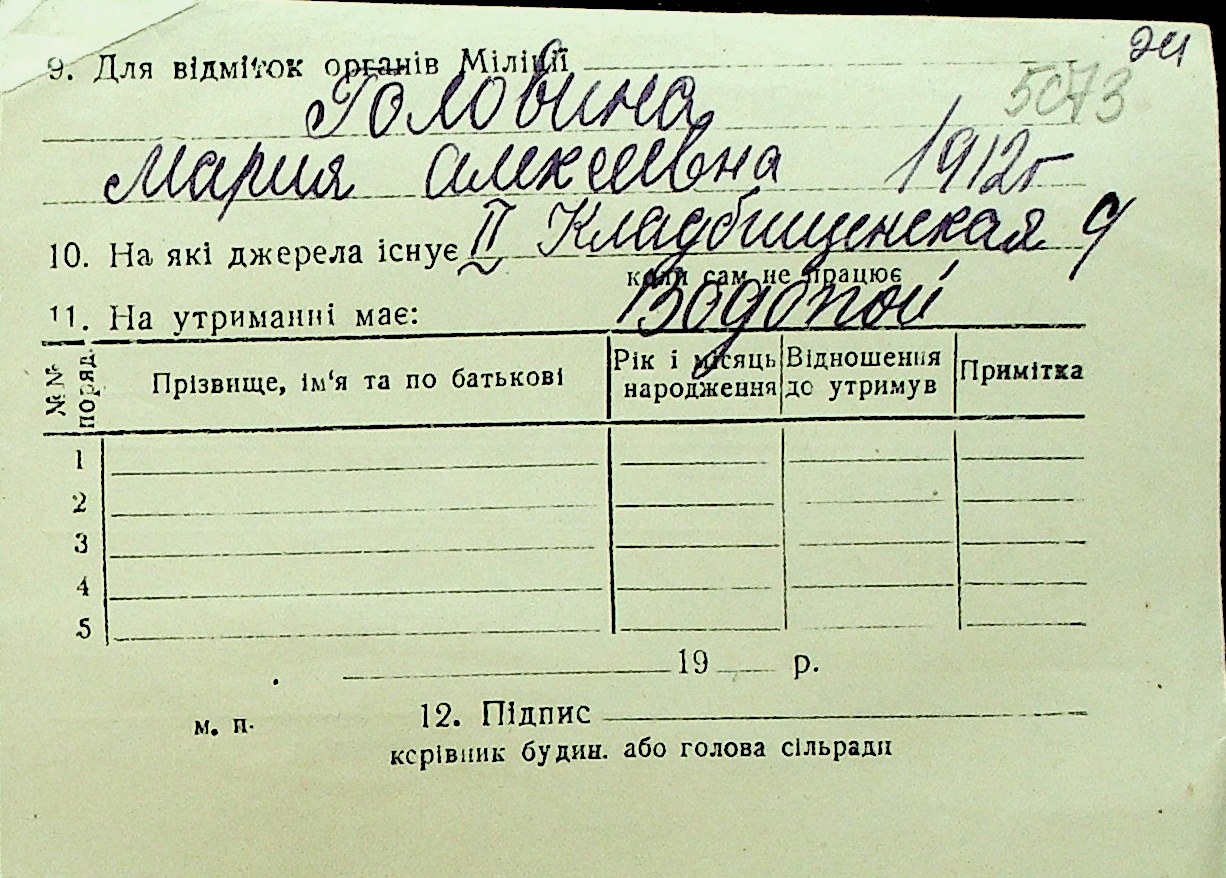 24
9. Для відміток органів Міліції
5073
Головина
Мария Алексеевна 1912г
10. На які джерела існує II Кладбищенская 9
коли сам не працює
Водопой
11. На утриманні має:
№№ поряд. Прізвище, ім'я та по батькові Рік і місяць народження Відношення до утримув Примітка
1
2
3
4
5
19 р.
м. п. 12. Підпис
керівник будин. або голова сільради